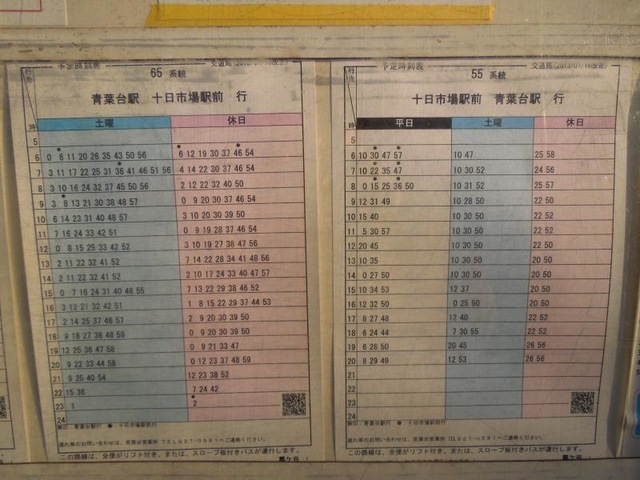 予定時刻表
65 系統
青葉台駅 十日市場駅前 行
時 土曜 休日
5
6 0 6 11 20 26 35 43 50 56 6 12 19 30 37 46 54
7 3 11 17 22 25 31 36 41 46 51 56 4 14 22 30 37 46 54
8 3 10 16 24 32 37 45 50 56 2 12 22 32 40 50
9 3 8 13 21 30 38 48 57 0 9 20 30 37 46 54
10 6 14 23 31 40 48 57 3 10 20 30 39 50
11 7 16 24 33 42 51 0 9 19 28 37 46 54
12 0 8 15 25 33 42 52 3 10 19 27 38 47 56
13 2 11 22 32 41 52 7 14 22 28 34 41 48 56
14 2 11 22 32 41 52 2 10 17 24 33 40 47 57
15 0 7 16 24 31 40 48 55 7 13 22 29 38 46 52
16 3 12 21 32 42 51 1 8 15 22 29 37 44 53
17 2 14 25 37 46 57 2 9 20 30 39 50
18 9 18 27 38 48 59 0 9 20 30 39 50
19 12 25 36 47 58 0 9 21 33 47
20 9 22 33 44 58 0 12 23 37 48 59
21 9 25 40 54 12 23 38 52
22 15 36 7 24 42
23 1 2
24
無印：青葉台駅行 ●：十日市場駅前行
遅れ等のお問い合わせは、青葉台営業所 TEL921-0581へご連絡ください。
この路線は、全便がリフト付き、または、スロープ板付きバスが運行します。
予定時刻表
55 系統
十日市場駅前 青葉台駅 行
時 平日 土曜 休日
5
6 10 30 47 57 10 47 25 58
7 10 22 35 47 10 30 52 24 56
8 0 15 25 36 50 10 31 52 25 57
9 12 31 49 10 28 50 22 50
10 15 40 10 30 50 22 52
11 5 30 57 10 30 50 22 50
12 20 45 10 30 50 22 50
13 10 35 10 30 50 20 50
14 0 27 50 10 30 50 20 50
15 10 34 53 12 37 20 50
16 12 32 50 0 25 50 20 50
17 8 27 48 12 40 22 52
18 6 24 44 7 30 55 22 52
19 6 28 50 20 45 26 56
20 8 29 49 12 53 26 56
21
22
23
24
無印：青葉台駅行 ●：十日市場駅前行
遅れ等のお問い合わせは、青葉台営業所 TEL921-0581へご連絡ください。
この路線は、全便がリフト付き、または、スロープ板付きバスが運行します。